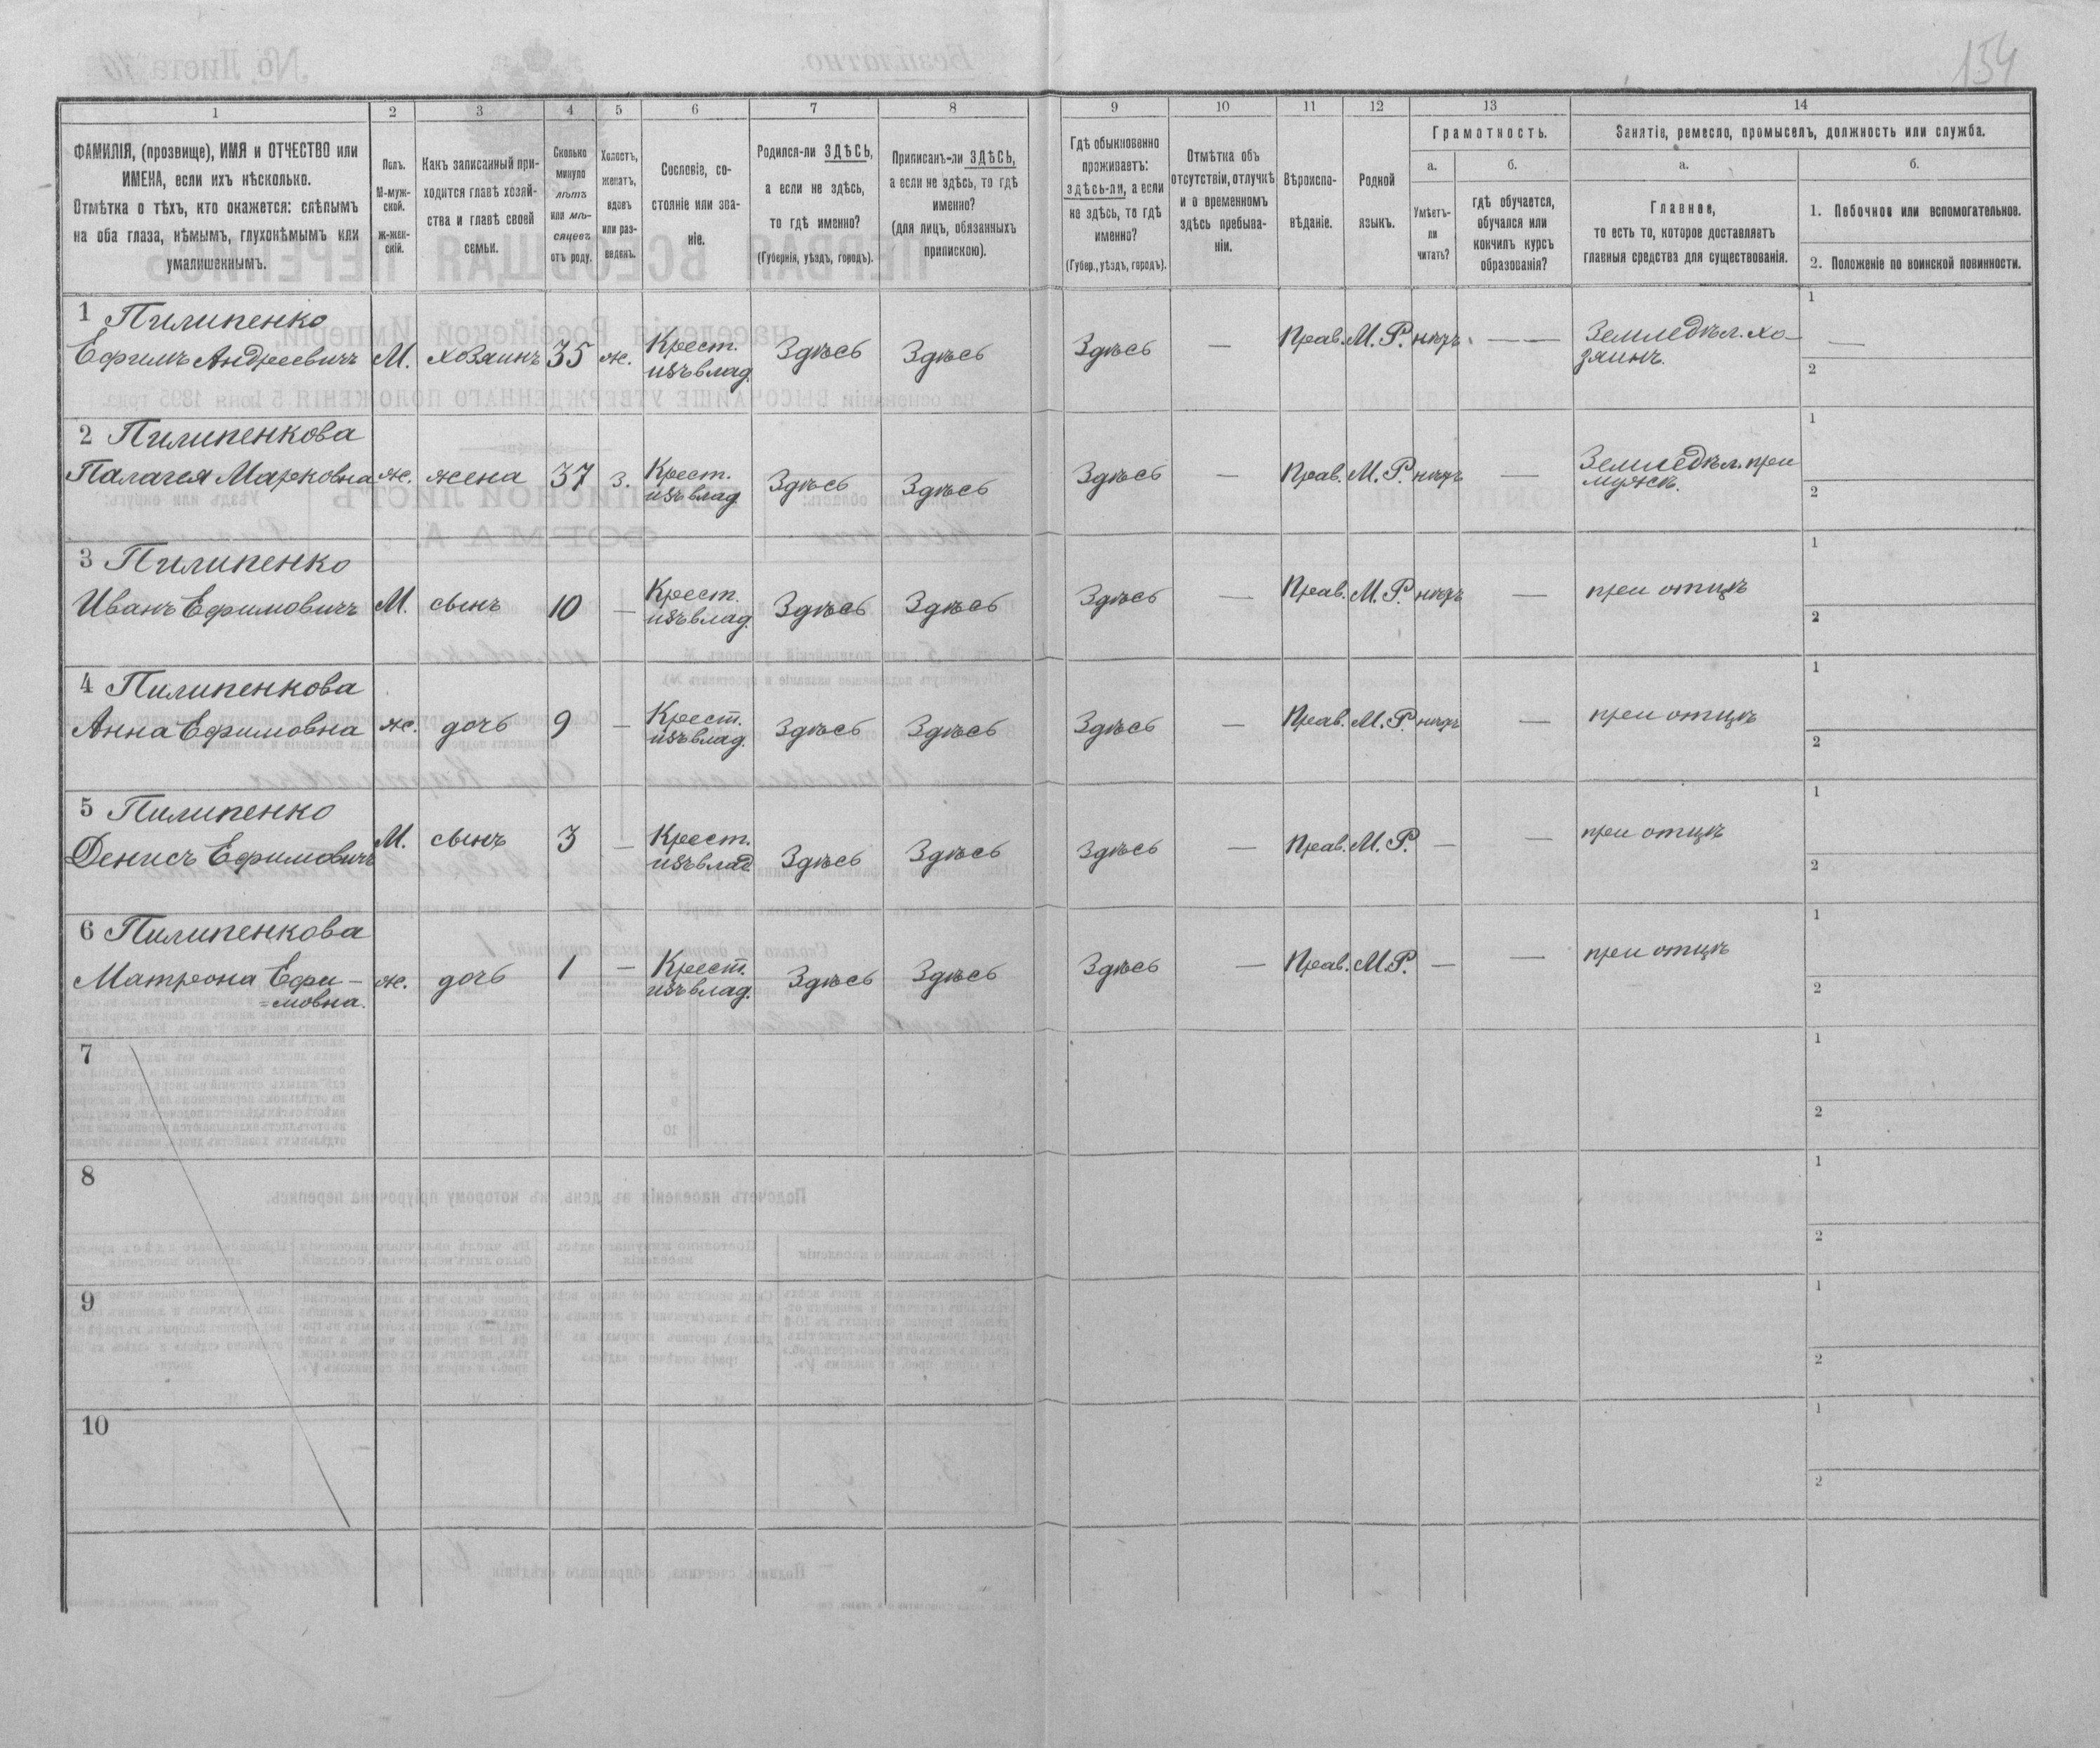 154
1 2 3 4 5 6 7 8 9 10 11 12 13 14
ФАМИЛІЯ, (прозвище), ИМЯ и ОТЧЕСТВО или
ИМЕНА, если ихъ нѣсколько.
Отмѣтка о тѣхъ, кто окажется: слѣпымъ
на оба глаза, нѣмымъ, глухонѣмымъ или
умалишеннымъ.
Полъ.
М-муж-
ской.
Ж-жен-
скій.
Какъ записанный при-
ходится главѣ хозяй-
ства и главѣ своей
семьи.
Сколько
минуло
лѣтъ
или мѣ-
сяцевъ
отъ роду.
Холостъ,
женатъ,
вдовъ
или раз-
веденъ.
Сословіе, со-
стояніе или зва-
ніе.
Родился-ли ЗДѢСЬ,
а если не здѣсь,
то гдѣ именно?
(Губернія, уѣздъ, городъ).
Приписанъ-ли ЗДѢСЬ,
а если не здѣсь, то гдѣ
именно?
(для лицъ, обязанныхъ
припискою).
Гдѣ обыкновенно
проживаетъ:
здѣсь-ли, а если
не здѣсь, то гдѣ
именно?
(Губер., уѣздъ, городъ).
Отмѣтка объ
отсутствіи, отлучкѣ
и о временномъ
здѣсь пребыва-
ніи.
Вѣроиспо-
вѣданіе.
Родной
языкъ.
Грамотность.
а.
Умѣетъ-
ли
читать?
б.
гдѣ обучается,
обучался или
кончилъ курсъ
образованія?
Занятіе, ремесло, промыселъ, должность или служба.
а.
Главное,
то есть то, которое доставляетъ
главныя средства для существованія.
б.
1. Побочное или вспомогательное.
2. Положеніе по воинской повинности.
1 Пилипенко
Ефимъ Андреевичъ М. хозяинъ 35 ж. Крест. Здѣсь Здѣсь Здѣсь — Прав. М. Р. нѣтъ — — Земледѣл. хо- 1 —
изъ влад. зяинъ. 2 —
2 Пилипенкова
Палагея Марковна ж. жена 37 З. Крест. Здѣсь Здѣсь Здѣсь — Прав. М. Р. нѣтъ — Земледѣл. при 1
изъ влад мужѣ. 2
3 Пилипенко
Иванъ Ефимовичъ М. сынъ 10 — Крест. Здѣсь Здѣсь Здѣсь — Прав. М. Р. нѣтъ — при отцѣ 1
изъ влад. 2
4 Пилипенкова
Анна Ефимовна ж. дочь 9 — Крест. Здѣсь Здѣсь Здѣсь — Прав. М. Р. нѣтъ — при отцѣ 1
изъ влад. 2
5 Пилипенко
Денисъ Ефимовичъ М. сынъ 3 — Крест. Здѣсь Здѣсь Здѣсь — Прав. М. Р. — — при отцѣ 1
изъ влад 2
6 Пилипенкова
Матреона Ефи- ж. дочь 1 — Крест. Здѣсь Здѣсь Здѣсь — Прав. М. Р. — — при отцѣ 1
=мовна. изъ влад. 2
7 1
2
8 1
2
9 1
2
10 1
2